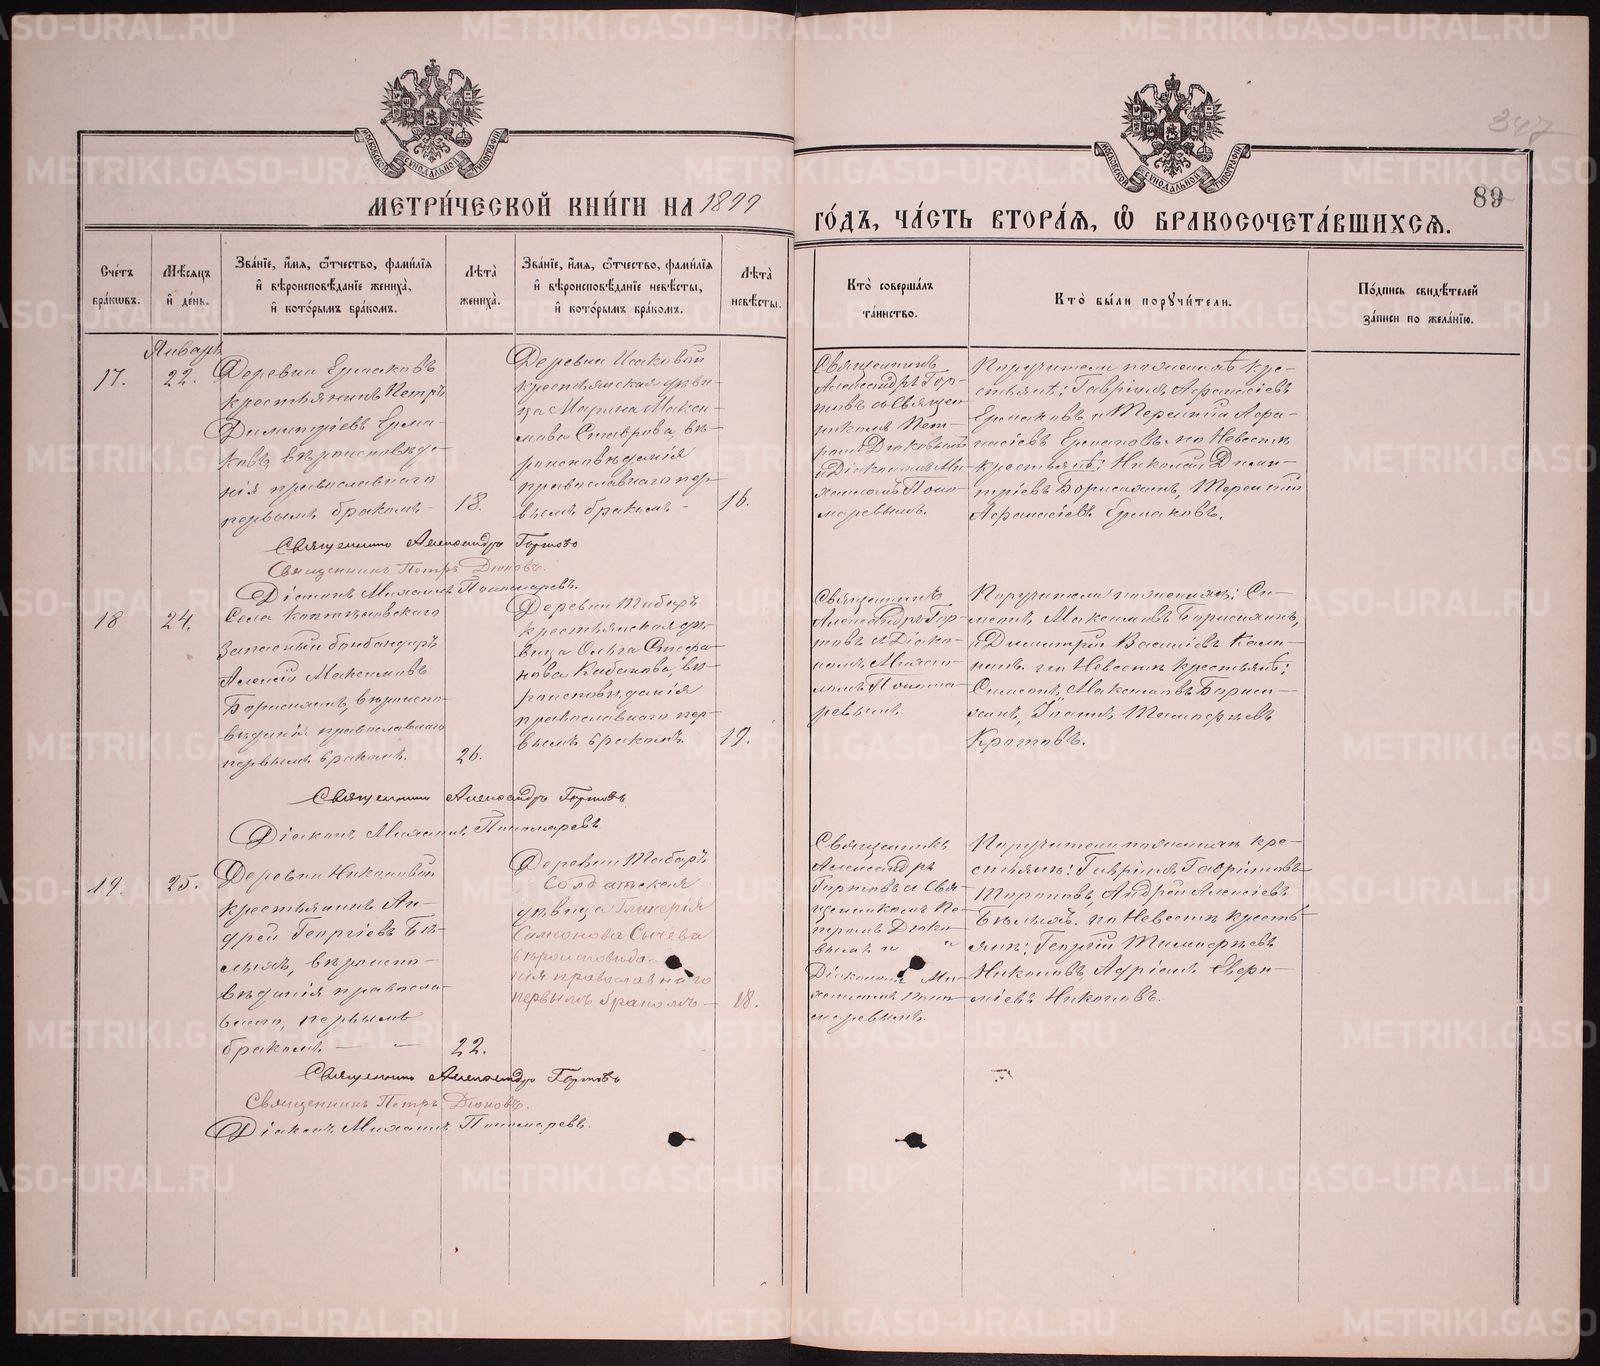 347
89
МЕТРИ́ЧЕСКОЙ КНИ́ГИ НА 1899
ГО́ДЪ, ЧА́СТЬ ВТОРА́Я, Ѽ БРАКОСОЧЕТА́ВШИХСЯ.
Сче́тъ бра́ковъ.
Мѣ́сяцъ и҆ де́нь.
Зва́ніе, и҆́мя, ѻ҆́тчество, фами́лія
и҆ вѣроисповѣ́даніе жениха̀,
и҆ кото́рымъ бра́комъ.
Лѣ́та жениха̀.
Зва́ніе, и҆́мя, ѻ҆́тчество, фами́лія
и҆ вѣроисповѣ́даніе невѣ́сты,
и҆ кото́рымъ бра́комъ.
Лѣ́та невѣ́сты.
Кто̀ соверша́лъ та́инство.
Кто̀ бы́ли поручи́тели.
По́дпись свидѣ́телей за́писи по жела́нію.
Январь
17.
22.
Деревни Ермаковъ
крестьянинъ Петръ
Димитріевъ Ерма-
ковъ, вѣроисповѣда-
нія православнаго
первымъ бракомъ -
18.
Деревни Исаковой
крестьянская дѣви-
ца Марина Макси-
мова Ставрова вѣ-
роисповѣданія
православнаго пер-
вымъ бракомъ -
16.
Священникъ
Александръ Гор-
товъ съ Священ
никомъ Пет-
ромъ Дюковымъ
и Діакономъ Ми-
хаиломъ Поно-
маревымъ.
Поручители по женихѣ кре-
стьянѣ: Гавріилъ Афанасіевъ
Ермаковъ и Терентій Афа-
насіевъ Ермаковъ. по Невестѣ
крестьянѣ: Николай Дими-
тріевъ Борисихинъ, Терентій
Афанасіевъ Ермаковъ.
Священникъ Александръ Гортовъ
Священникъ Петръ Дюковъ.
Діаконъ Михаилъ Пономаревъ.
18
24.
Села
запасный бомбандиръ
Алексій Максимовъ
Борисихинъ, вѣроиспо-
вѣданія православнаго
первымъ бракомъ.
26.
Деревни Табаръ
крестьянская дѣ-
вица Ольга Стефа-
нова Кабакова, вѣ-
роисповѣданія
православнаго пер-
вымъ бракомъ.
19.
Священникъ
Александръ Гор-
товъ съ Діако-
номъ Михаи-
ломъ Понома-
ревымъ.
Поручители по женихѣ: Си-
меонъ Максимовъ Борисихинъ,
и Димитрій Василіевъ
по Невестѣ крестьянѣ:
Симеонъ Максимовъ Бориси-
хинъ, Іоаннъ Тимофѣевъ
Кротовъ.
Священникъ Александръ Гортовъ
Діаконъ Михаилъ Пономаревъ
19.
25.
Деревни Никоновой
крестьянинъ Ан-
дрей Георгіевъ Бѣ-
лыхъ, вѣроиспо-
вѣданія правосла-
внаго, первымъ
бракомъ — -
22.
Деревни Табаръ
Солдатская
дѣвица Гликерія
Симеонова Сычева
вѣроисповѣда-
нія православнаго
первымъ бракомъ —
18.
Священникъ
Александръ
Гортовъ и Свя-
щенникомъ Пе-
тромъ Дюко-
вымъ и "
Діакономъ Ми-
хаиломъ Поно-
маревымъ.
Поручители по женихѣ кре-
стьянѣ: Гавріилъ Гавріиловъ
Андрей Алексіевъ
Бѣлыхъ. по Невестѣ кресть-
янѣ: Георгій Тимофѣевъ
Никоновъ Адріанъ Еѳри-
міевъ Никоновъ.
Священникъ Александръ Гортовъ
Священникъ Петръ Дюковъ.
Діаконъ Михаилъ Пономаревъ.
METRIKI.GASO-URAL.RU